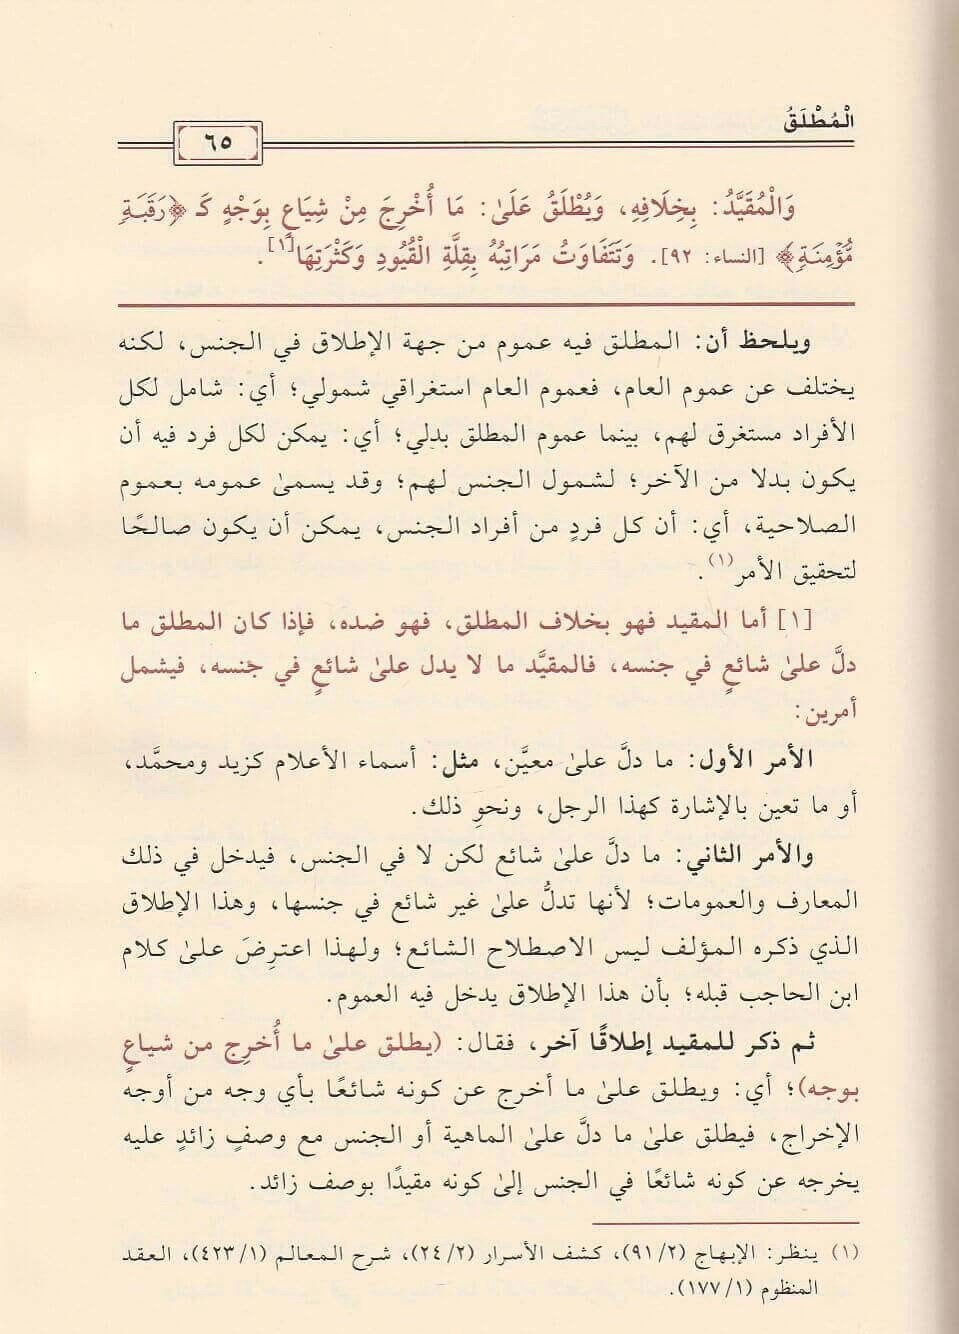 الْمُطْلَقُ
٦٥
وَالْمُقَيَّدُ: بِخِلَافِهِ، وَيُطْلَقُ عَلَىٰ: مَا أُخْرِجَ مِنْ شِيَاعٍ بِوَجْهٍ كَـ ﴿رَقَبَةٍ
مُّؤْمِنَةٍ﴾ [النساء: ٩٢]. وَتَتَفَاوَتُ مَرَاتِبُهُ بِقِلَّةِ الْقُيُودِ وَكَثْرَتِهَا[١].
ويلحظ أن: المطلق فيه عموم من جهة الإطلاق في الجنس، لكنه
يختلف عن عموم العام، فعموم العام استغراقي شمولي؛ أي: شامل لكل
الأفراد مستغرق لهم، بينما عموم المطلق بدلي؛ أي: يمكن لكل فرد فيه أن
يكون بدلا من الآخر؛ لشمول الجنس لهم؛ وقد يسمىٰ عمومه بعموم
الصلاحية، أي: أن كل فردٍ من أفراد الجنس، يمكن أن يكون صالحًا
لتحقيق الأمر(١).
[١] أما المقيد فهو بخلاف المطلق، فهو ضده، فإذا كان المطلق ما
دلَّ علىٰ شائعٍ في جنسه، فالمقيَّد ما لا يدل علىٰ شائعٍ في جنسه، فيشمل
أمرين:
الأمر الأول: ما دلَّ علىٰ معيَّن، مثل: أسماء الأعلام كزيد ومحمَّد،
أو ما تعين بالإشارة كهذا الرجل، ونحوِ ذلك.
والأمر الثاني: ما دلَّ علىٰ شائع لكن لا في الجنس، فيدخل في ذلك
المعارف والعمومات؛ لأنها تدلُّ علىٰ غير شائع في جنسها، وهذا الإطلاق
الذي ذكره المؤلف ليس الاصطلاح الشائع؛ ولهذا اعترِضَ علىٰ كلام
ابن الحاجب قبله؛ بأن هذا الإطلاق يدخل فيه العموم.
ثم ذكر للمقيد إطلاقًا آخر، فقال: (يطلق علىٰ ما أُخرِج من شياعٍ
بوجه)؛ أي: ويطلق علىٰ ما أخرج عن كونه شائعًا بأي وجه من أوجه
الإخراج، فيطلق علىٰ ما دلَّ علىٰ الماهية أو الجنس مع وصفٍ زائدٍ عليه
يخرجه عن كونه شائعًا في الجنس إلىٰ كونه مقيدًا بوصف زائد.
(١) ينظر: الإبهاج (٢/ ٩١)، كشف الأسرار (٢/ ٢٤)، شرح المعالم (١/ ٤٢٣)، العقد
المنظوم (١/ ١٧٧).